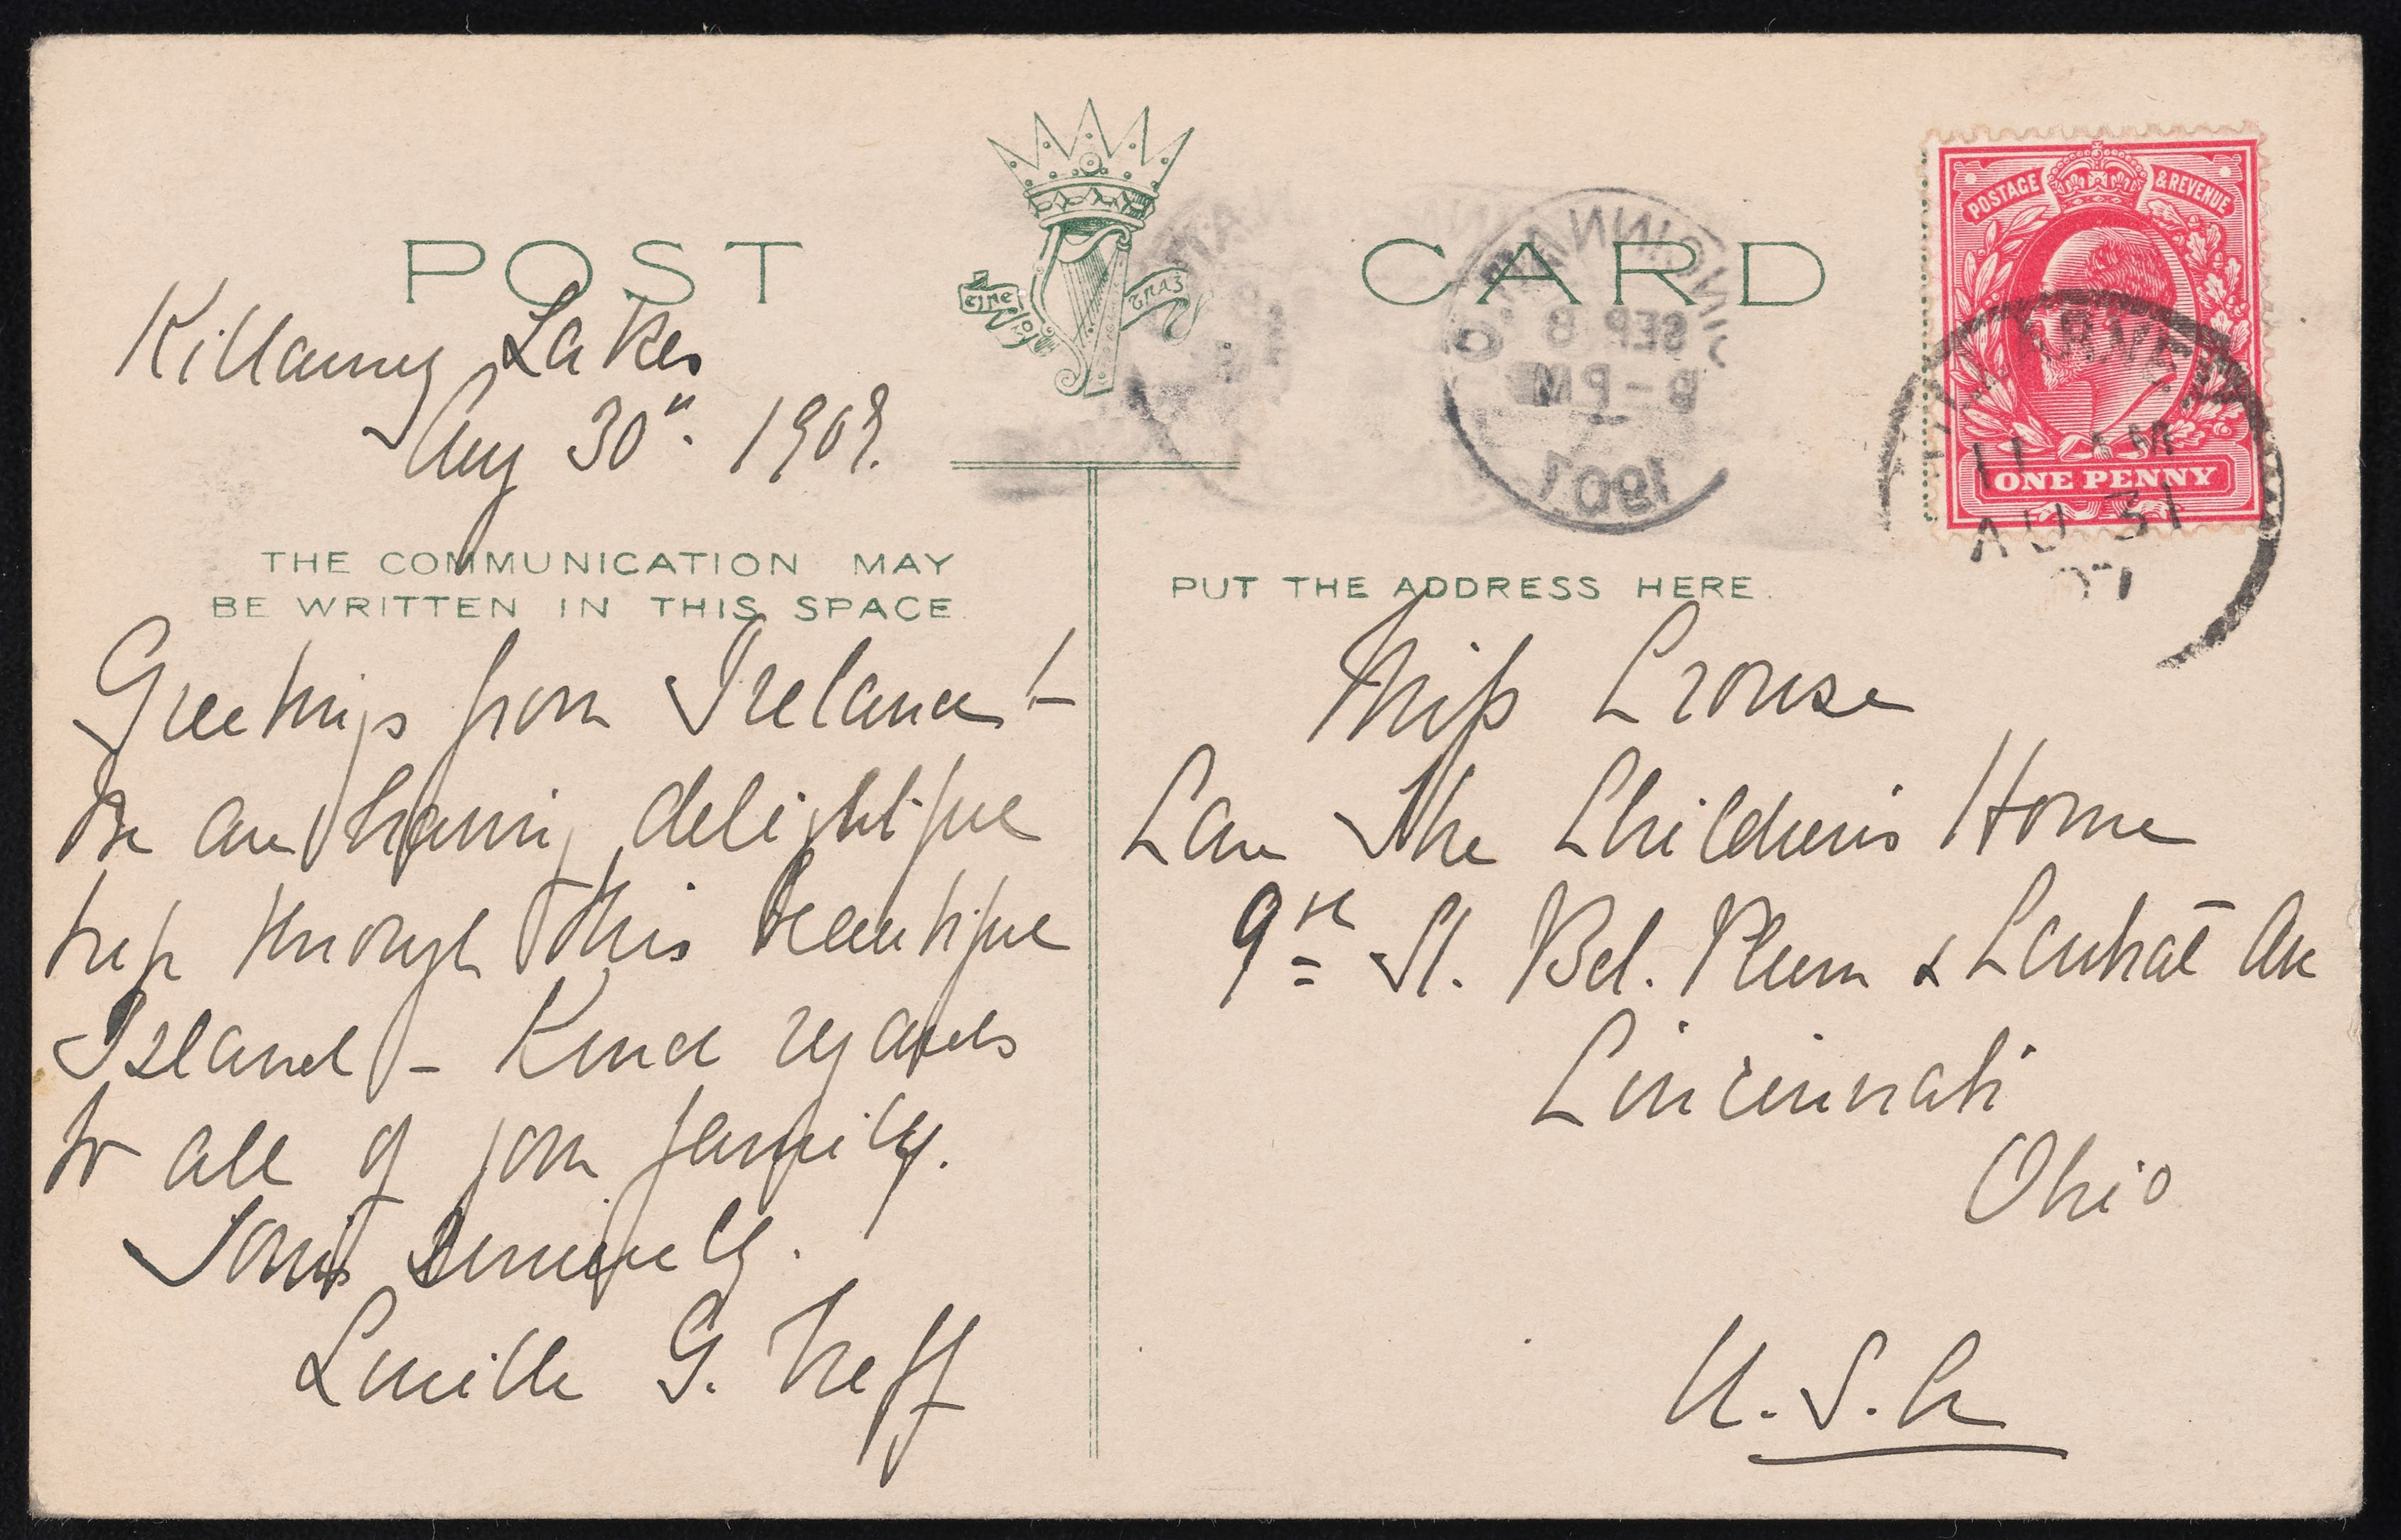 POST CARD
Killarney Lakes
Aug 30th. 1907.
THE COMMUNICATION MAY
BE WRITTEN IN THIS SPACE
Greetings from Ireland -
We are having delightful
trip through this beautiful
Island - Kind regards
to all of your family.
Yours Sincerely.
Lucille G. Neff
CINCINNATI, O.
SEP 8
8-PM
1907
POSTAGE & REVENUE
ONE PENNY
KILLARNEY
11 AM
AU 31
07
PUT THE ADDRESS HERE.
Miss Crouse
Care The Children's Home
9th St. Bet. Plum & Central Ave
Cincinnati
Ohio
U.S.A